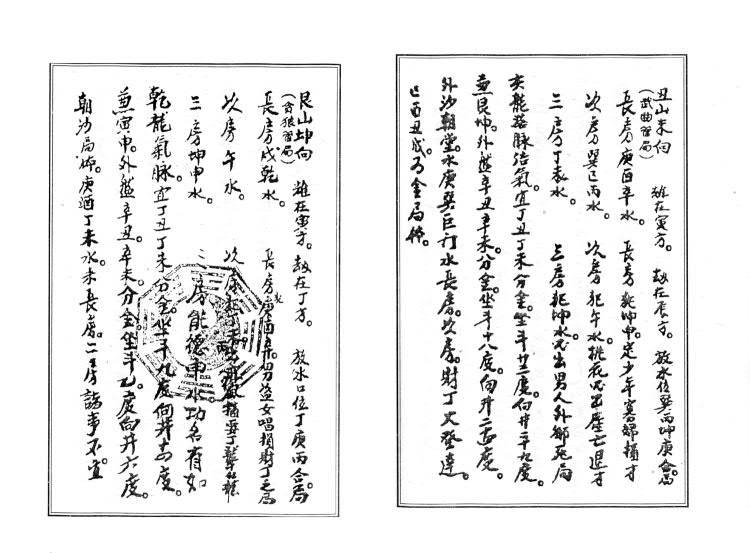 丑山未向　煞在寅方。劫在辰方。放水位巽丙坤庚合局
(武曲習局)
長房庚酉辛水。　長房犯坤申定少年寡婦損才
次房巽巳丙水。　次房犯午水桃花必出產亡退才
三房丁未水。　三房犯坤水必出男人外鄉死局
亥龍落脈活氣。宜丁丑丁未分金。坐斗廿二度。向井二十九度。
兼艮坤。外盤辛丑辛未。分金。坐斗十八度。向井二五度。
外沙朝堂水庚巽巨門水長房。次房。財丁大發達。
巳酉丑成為金局佈。
艮山坤向　煞在寅方。劫在丁方。放水口位丁庚丙合局
(貪狼習局)
長房戌乾水。　長房犯庚酉辛。男盜女唱損財丁之局
次房午水。
三房坤申水。　三房能德申水功名有如
乾龍氣脈。宜丁丑丁未分金。坐斗九度向井
兼寅申。外盤辛丑。辛未。分金。坐斗 度向井六度。
朝沙局佈。庚酒丁未水。未長房。二三房諸事不宜